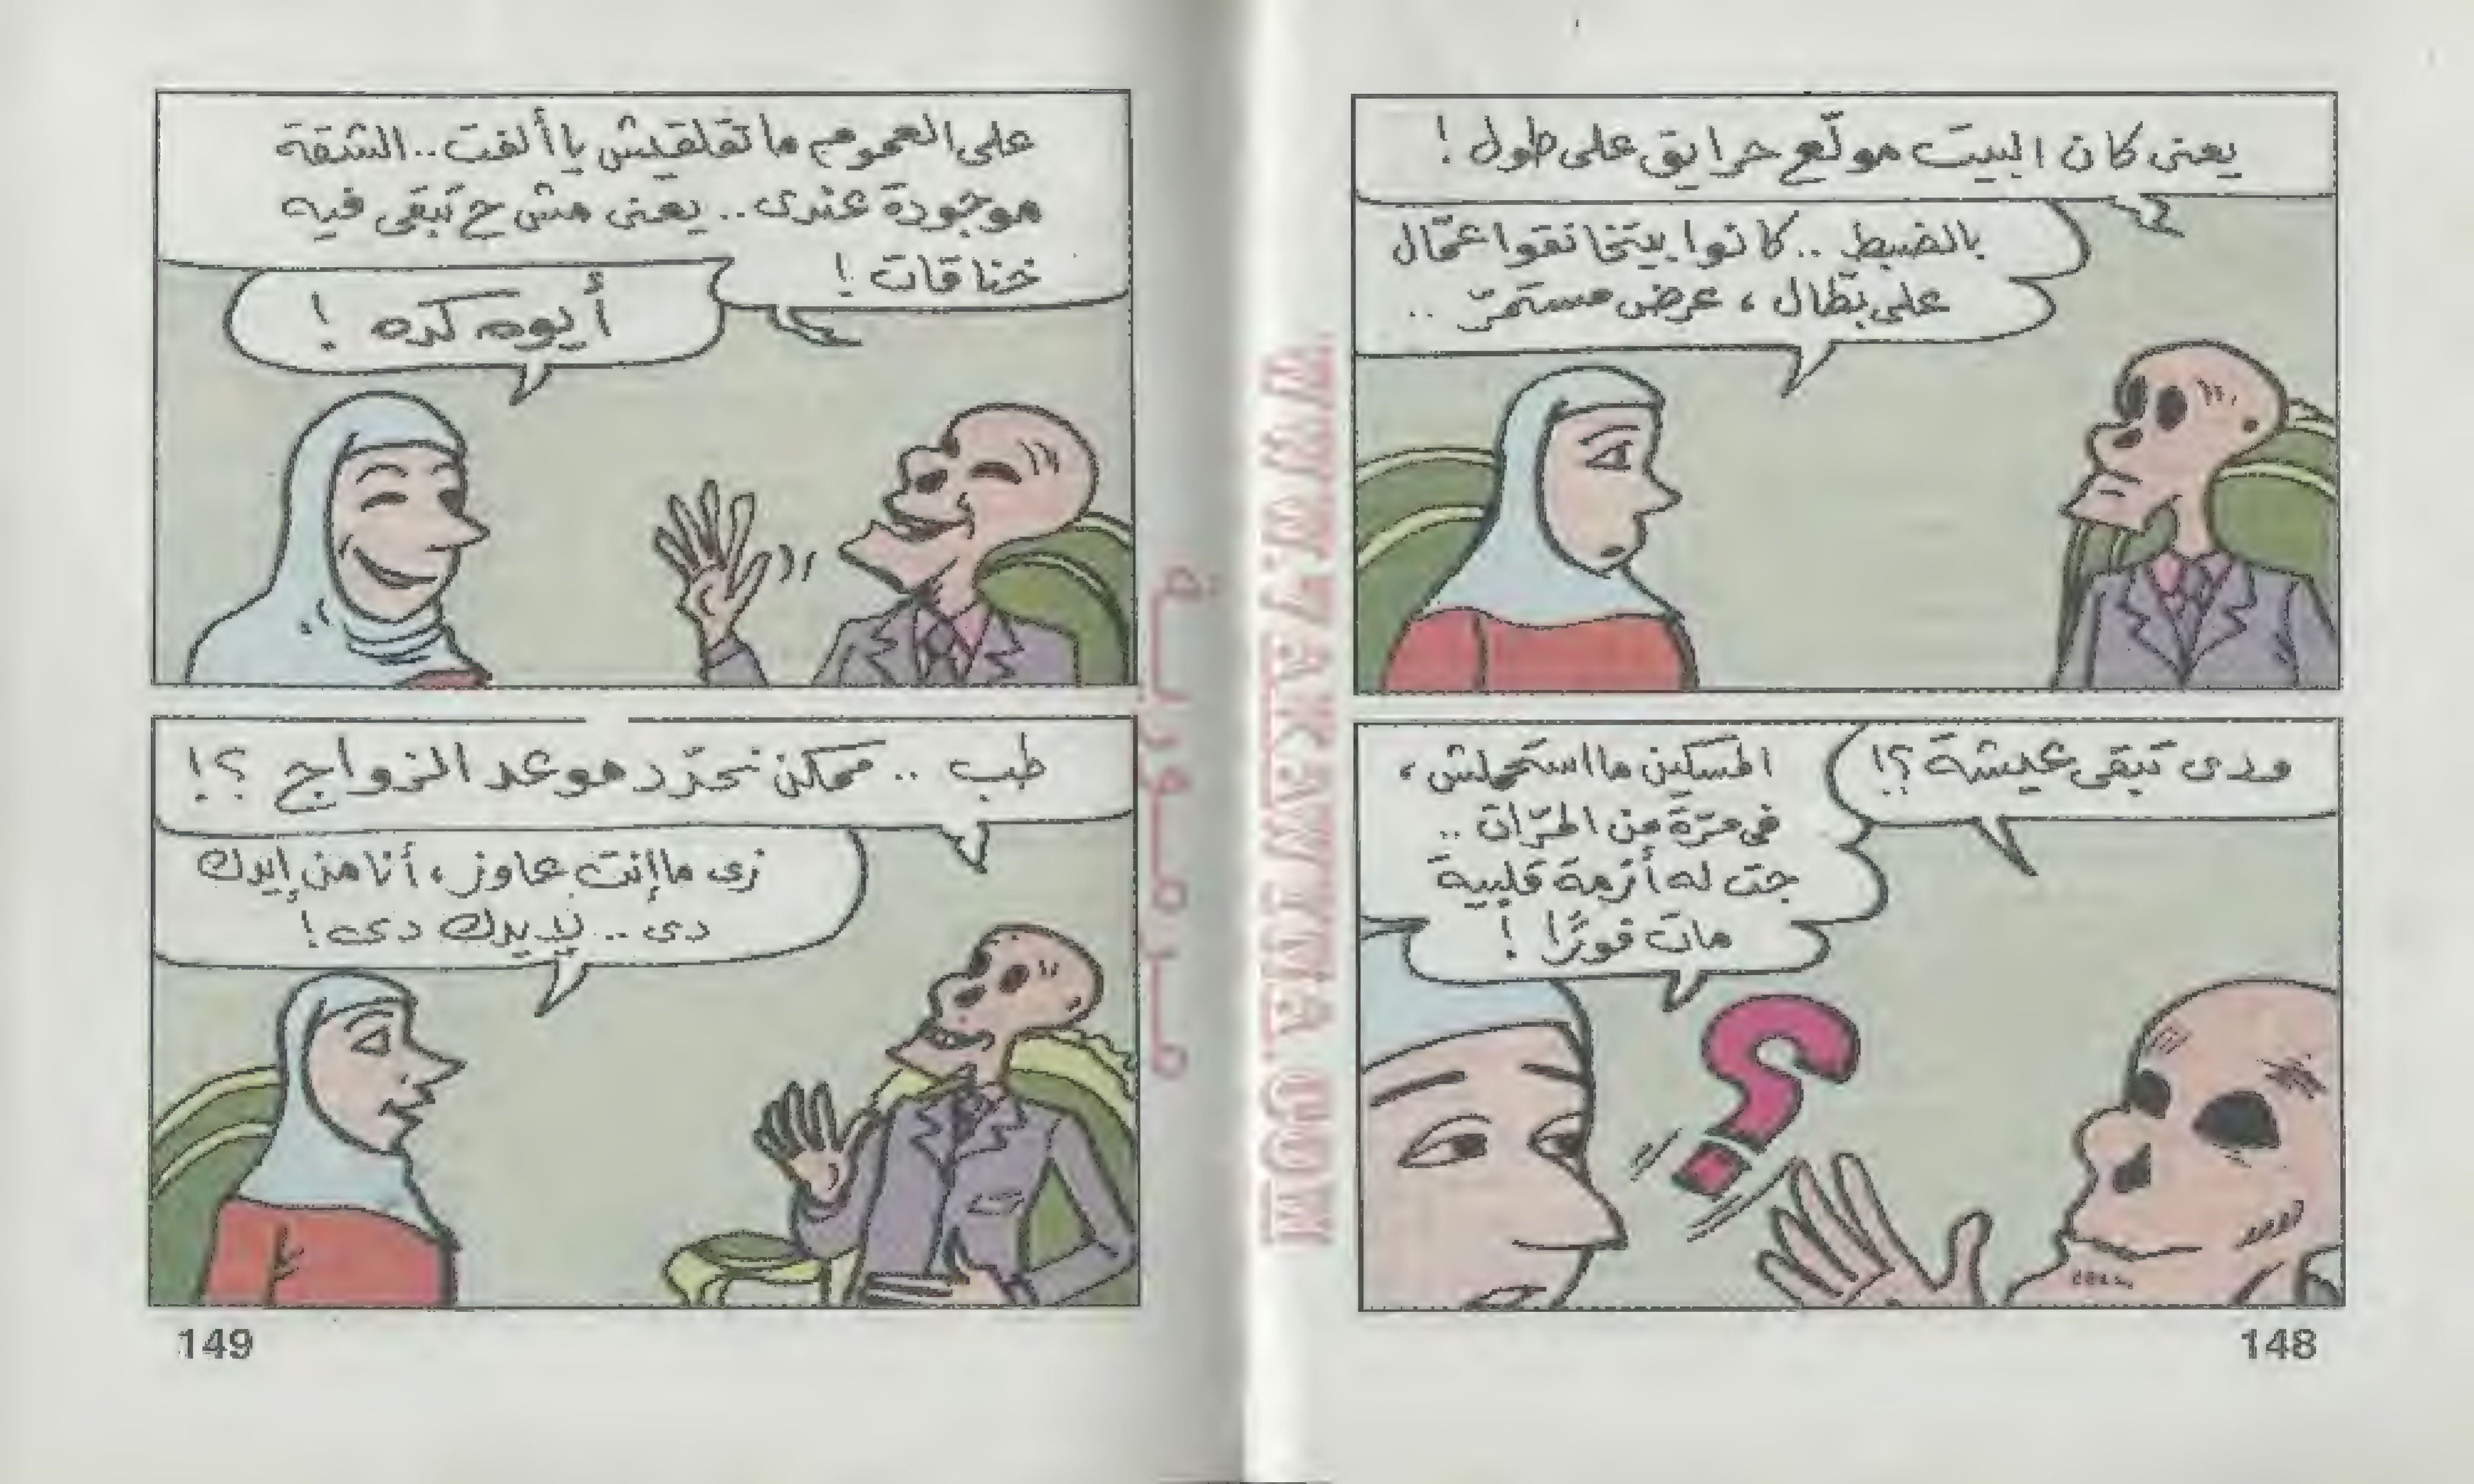 يعنى كان البيت مولّع حرايق على طول !
بالضبط .. كانوا بيتخانقوا عمّال
على بطّال ، عرض مستمرّ ..
ودى تبقى عيشة ؟!
المسكين ما استحملش ،
فى مرّة من المرّات ..
جت له أزمة قلبية
مات فورًا !
148
على العموم ما تقلقيش يا ألفت .. الشقة
موجودة عندى .. يعنى مش ح تبقى فيه
خناقات !
أيوه كده !
طب .. ممكن نحدّد موعد الزواج ؟!
زى ما إنت عاوز ، أنا من إيدك
دى .. لإيدك دى !
149
WWW.7AKAWYNA.COM